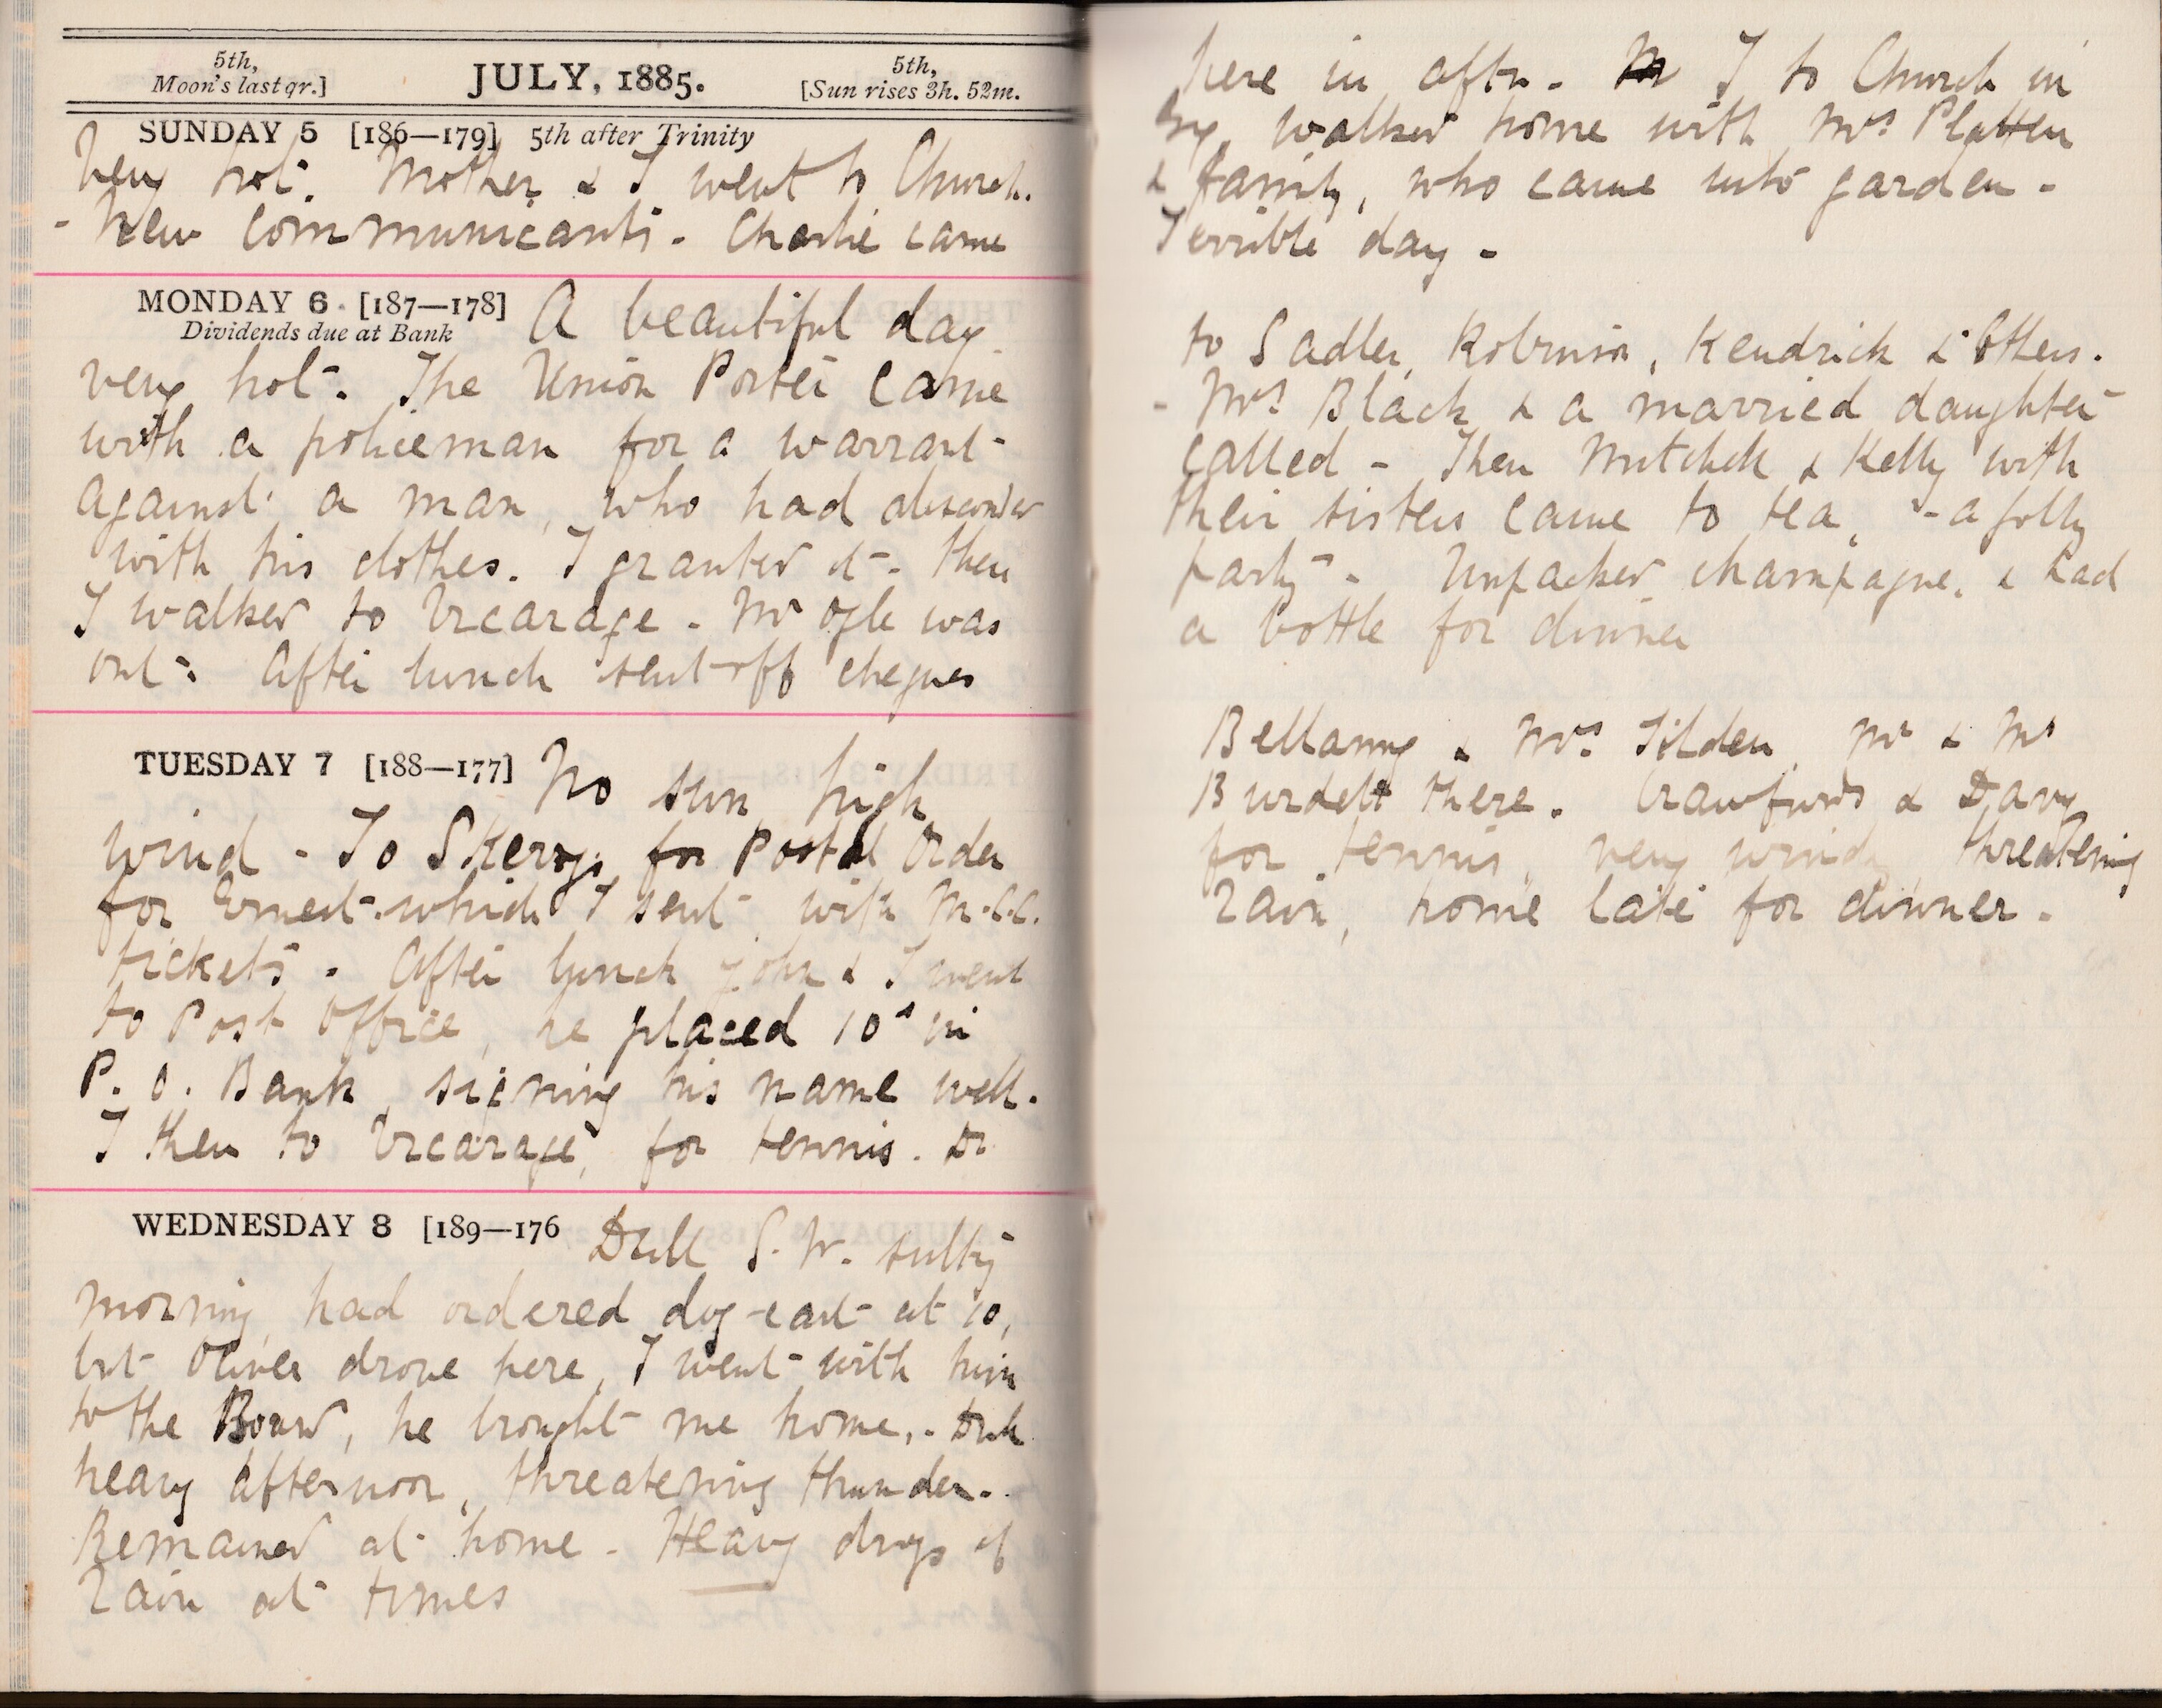 5th,
Moon's last qr.]
JULY, 1885.
5th,
[Sun rises 3h. 52m.
SUNDAY 5 [186—179] 5th after Trinity
Very hot. Mother & I went to Church.
- New Communicants. Charlie came
MONDAY 6 [187—178]
Dividends due at Bank
A beautiful day
very hot. The Union Porter came
with a policeman for a warrant
against a man, who had absconded
with his clothes. I granted it. Then
I walked to Vicarage - Mr Ogle was
out. After lunch sent off cheques
TUESDAY 7 [188—177]
No sun, high
wind - To Skerry's for Postal Order
for Ernest which I sent with M.C.C.
tickets. After lunch John & I went
to Post Office, he placed 10s in
P. O. Bank, signing his name well.
I then to Vicarage, for tennis. Dr
WEDNESDAY 8 [189—176
Dull S. W. sultry
morning, had ordered dog-cart at 10,
but Oliver drove here, I went with him
to the Board, he brought me home. - Dull
heavy afternoon, threatening thunder.
Remained at home - Heavy drops of
rain at times
here in aftn. I to Church in
Evg, walked home with Mrs Platten
& family, who came into garden -
Terrible day -
to Sadler, Robinson, Kendrick & Others.
- Mrs Black & a married daughter
called - Then Mitchell & Kelly with
their sisters came to tea, - a jolly
party - Unpacked champagne, & had
a bottle for dinner
Bellamy & Mrs Tilden, Mr & Mrs
Burdett there. Crawfurds & Davy
for tennis, very windy, threatening
rain, home late for dinner.